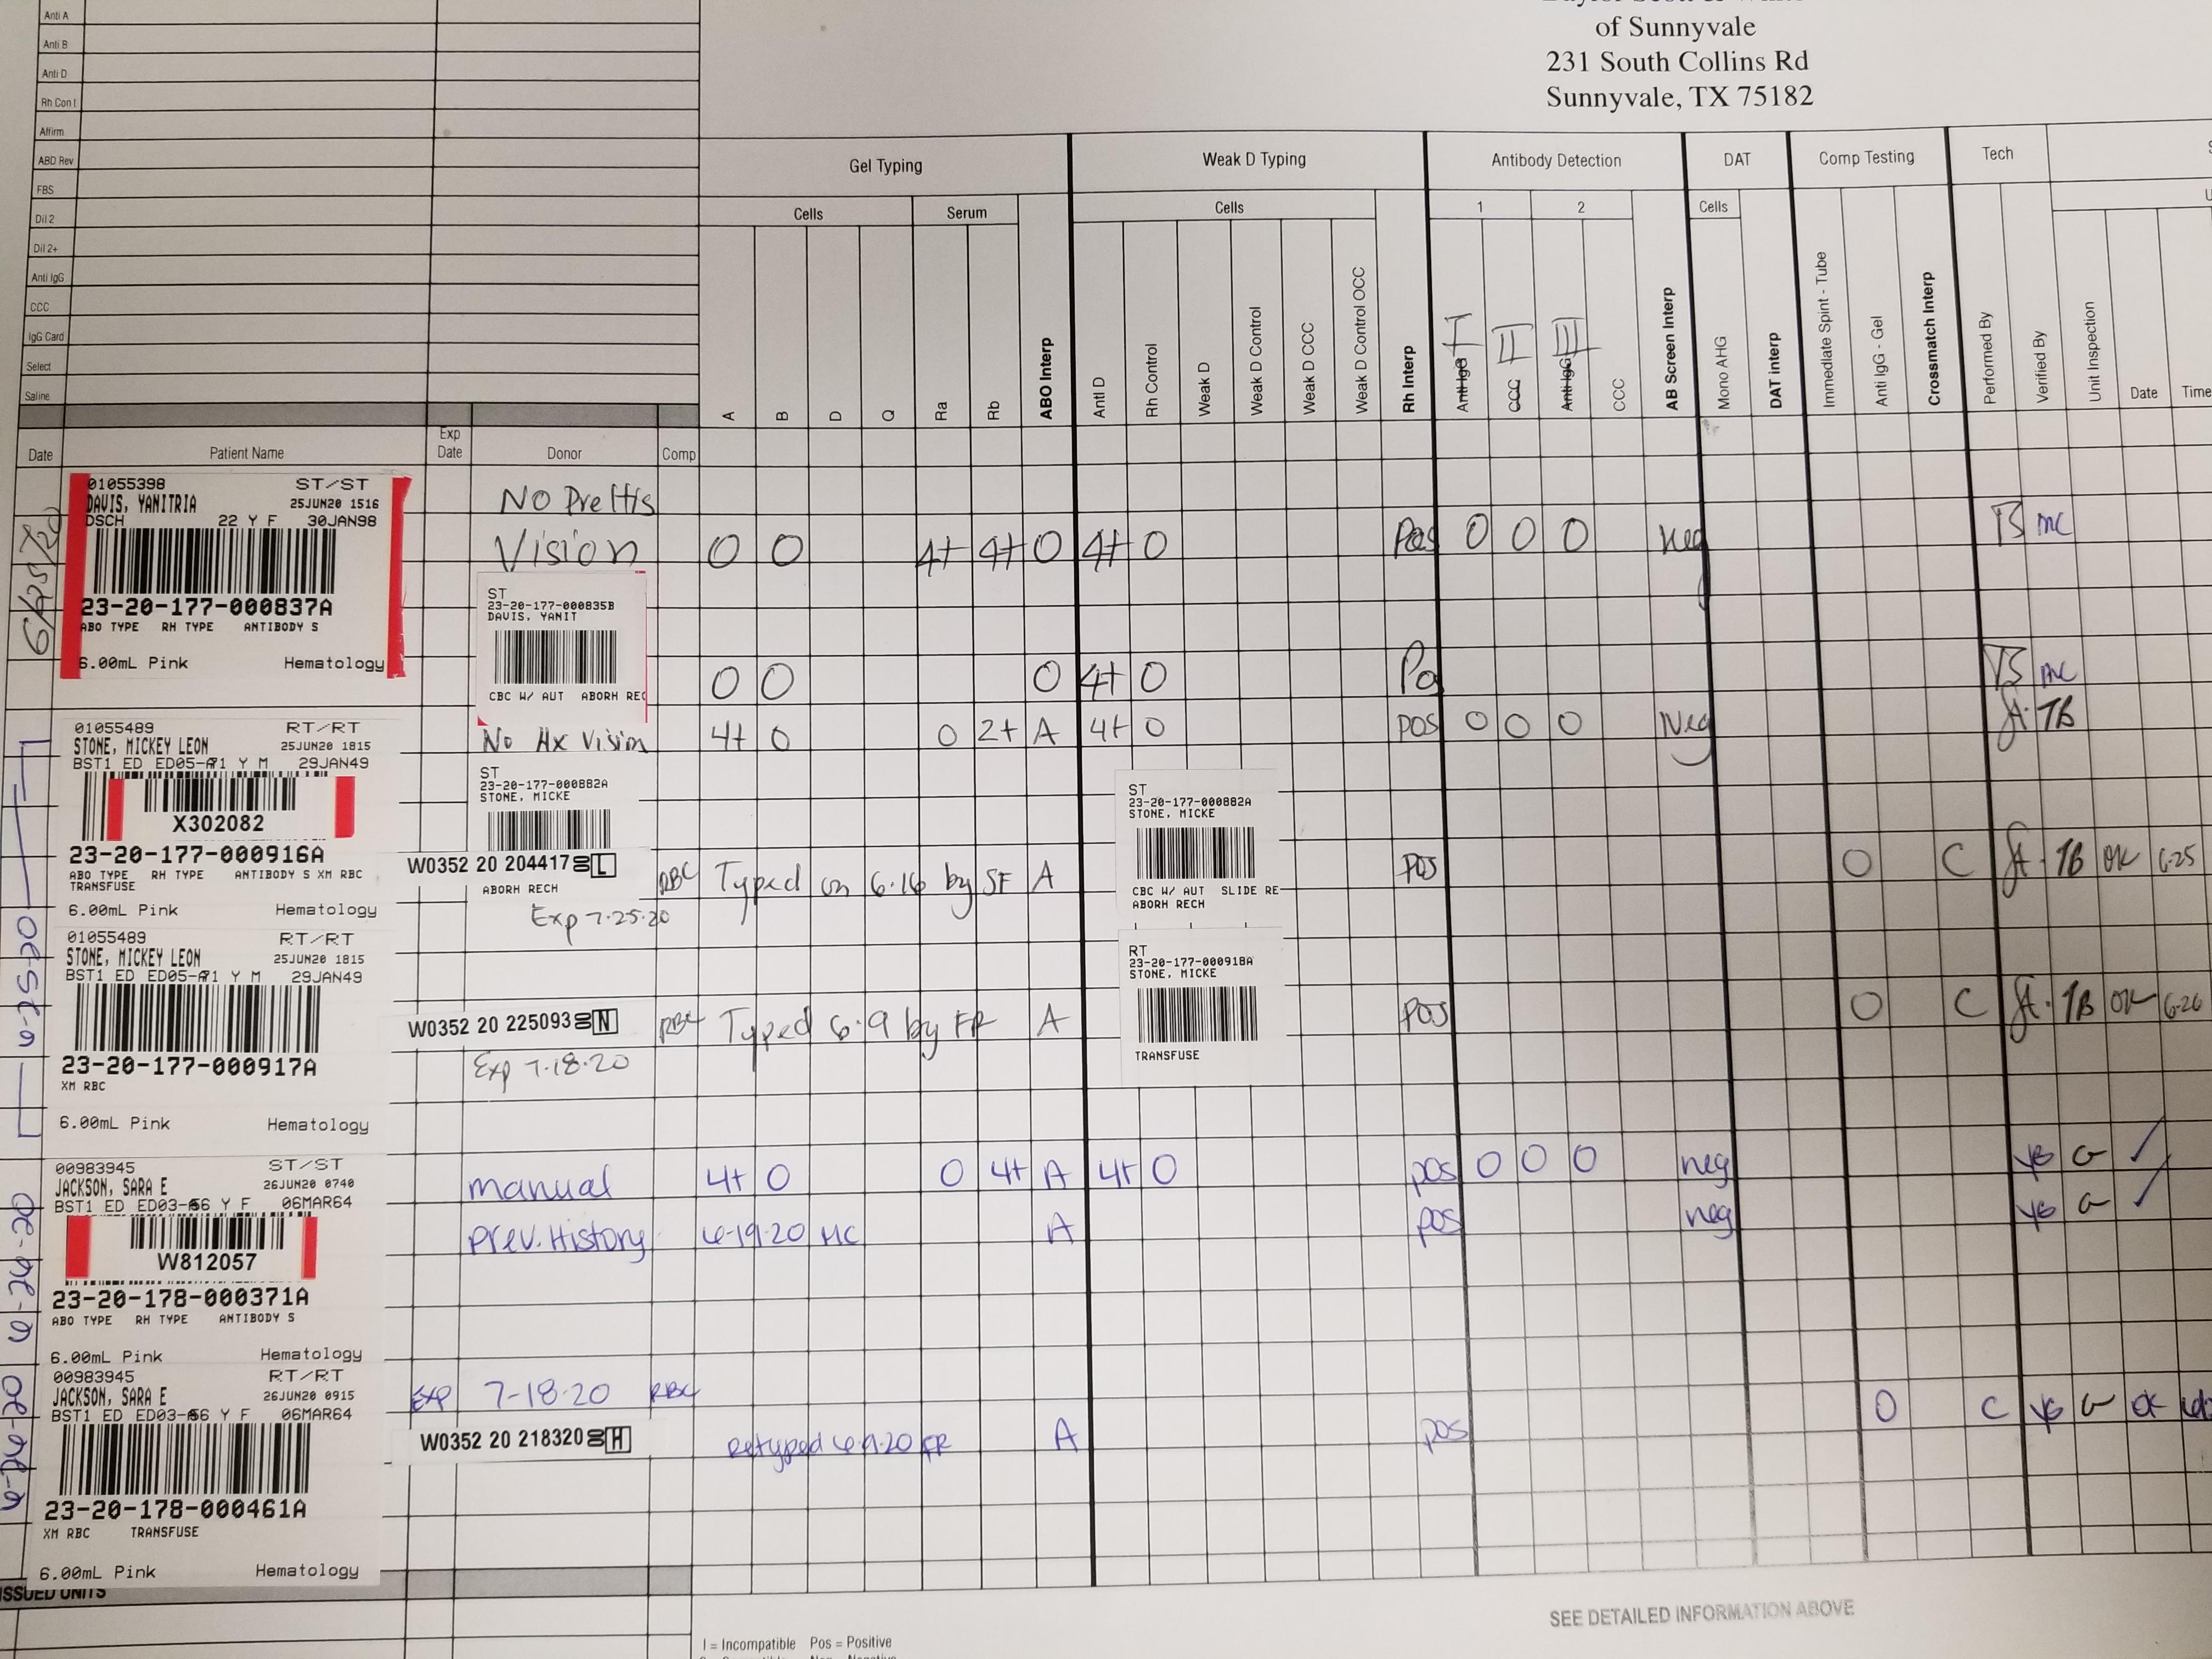 of Sunnyvale
231 South Collins Rd
Sunnyvale, TX 75182
Anti A
Anti B
Anti D
Rh Con I
Affirm
ABD Rev
FBS
Dil 2
Dil 2+
Anti IgG
CCC
IgG Card
Select
Saline
Gel Typing
Weak D Typing
Antibody Detection
DAT
Comp Testing
Tech
Cells
Serum
Cells
1
2
Cells
A
B
D
Q
Ra
Rb
ABO Interp
Anti D
Rh Control
Weak D
Weak D Control
Weak D CCC
Weak D Control OCC
Rh Interp
Anti IgG I
CCC II
Anti IgG III
CCC
AB Screen Interp
Mono AHG
DAT interp
Immediate Spint - Tube
Anti IgG - Gel
Crossmatch Interp
Performed By
Verified By
Unit Inspection
Date
Time
Date
Patient Name
Exp Date
Donor
Comp
6/25/20
01055398 ST/ST
DAVIS, YANITRIA 25JUN20 1516
DSCH 22 Y F 30JAN98
23-20-177-000837A
ABO TYPE RH TYPE ANTIBODY S
6.00mL Pink Hematology
NO Pre His
Vision 0 0 4+ 4+ O 4+ 0 Pos 0 0 0 neg TS mc
ST
23-20-177-000835B
DAVIS, YANIT
CBC W/ AUT ABORH REC
0 0 O 4+ 0 Po TS mc
01055489 RT/RT
STONE, MICKEY LEON 25JUN20 1815
BST1 ED ED05-A71 Y M 29JAN49
X302082
23-20-177-000916A
ABO TYPE RH TYPE ANTIBODY S XM RBC
TRANSFUSE
6.00mL Pink Hematology
No Hx Vision 4+ 0 0 2+ A 4+ 0 POS 0 0 0 Neg TB
ST
23-20-177-000882A
STONE, MICKE
ABORH RECH
ST
23-20-177-000882A
STONE, MICKE
CBC W/ AUT SLIDE RE
ABORH RECH
W0352 20 204417 L RBC Typed on 6.16 by SF A POS 0 C TB OK 6-25
Exp 7.25.20
01055489 RT/RT
STONE, MICKEY LEON 25JUN20 1815
BST1 ED ED05-A71 Y M 29JAN49
23-20-177-000917A
XM RBC
6.00mL Pink Hematology
RT
23-20-177-000918A
STONE, MICKE
TRANSFUSE
W0352 20 225093 N RBC Typed 6.9 by FR A POS 0 C TB OK 6-26
Exp 7.18.20
00983945 ST/ST
JACKSON, SARA E 26JUN20 0740
BST1 ED ED03-A56 Y F 06MAR64
W812057
23-20-178-000371A
ABO TYPE RH TYPE ANTIBODY S
6.00mL Pink Hematology
manual 4+ 0 0 4+ A 4+ 0 pos 0 0 0 neg
prev. History 6-19-20 MC A pos neg
00983945 RT/RT
JACKSON, SARA E 26JUN20 0915
BST1 ED ED03-A56 Y F 06MAR64
23-20-178-000461A
XM RBC TRANSFUSE
6.00mL Pink Hematology
Exp 7-18-20 RBC
0 C OK
W0352 20 218320 H Retyped 6.9.20 FR A pos
ISSUED UNITS
SEE DETAILED INFORMATION ABOVE
I = Incompatible Pos = Positive